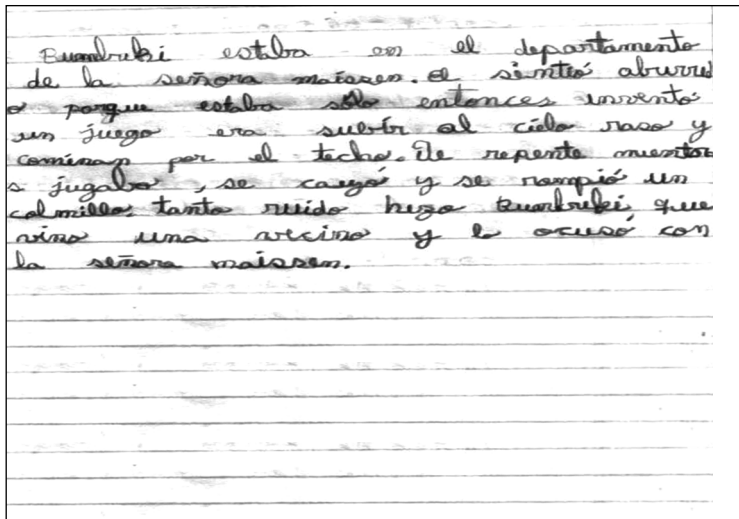 Bumbruki estaba en el departamento
de la señora maissen. el sintió aburrid
o porque estaba sólo entonces invento
un juego era subir al cielo raso y
caminar por el techo. De repente mientra
s jugaba, se cayó y se rompió un
colmillo, tanto ruido hizo Bumbruki que
vino una vecina y lo acusó con
la señora maissen.